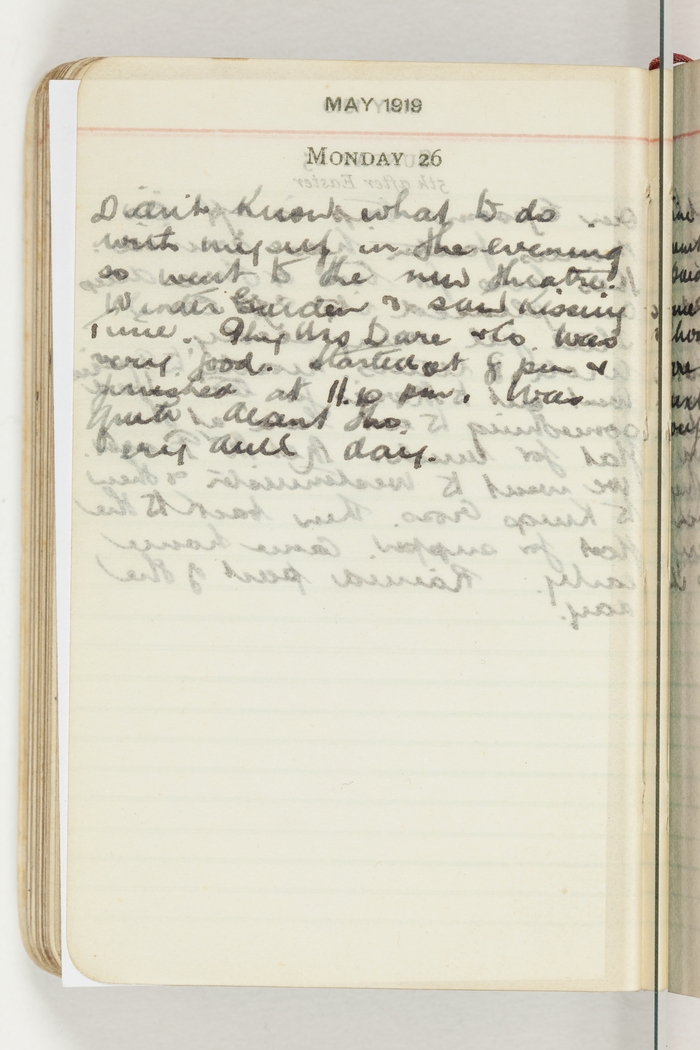 MAY 1919
MONDAY 26
Didn't Know what to do
with myself in the evening
so went to the new theatre.
Winter Garden & saw Kissing
Time. Phyllis Dare & Co. Was
very good. Started at 8 pm &
finished at 11.10 pm. Was
quite decent tho.
Very dull day.